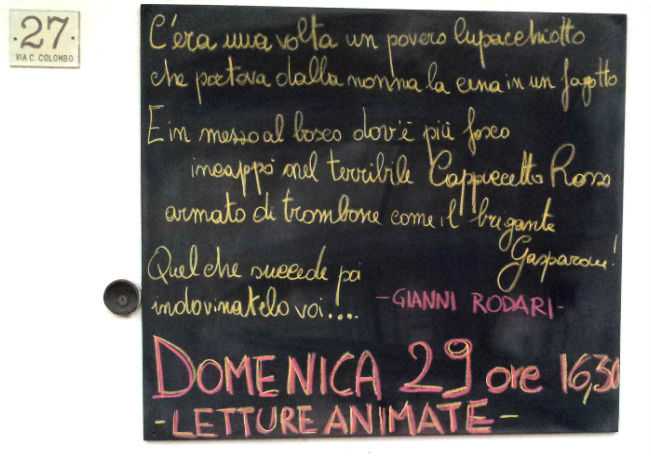 ·27·
VIA C. COLOMBO
C'era una volta un povero lupacchiotto
che portava dalla nonna la cena in un fagotto
E in mezzo al bosco dov'è più fosco
incappò nel terribile Cappuccetto Rosso
armato di trombone come il brigante
Gasparone!
Quel che succede poi
indovinatelo voi....
-GIANNI RODARI-
DOMENICA 29 ore 16,30
-LETTURE ANIMATE-